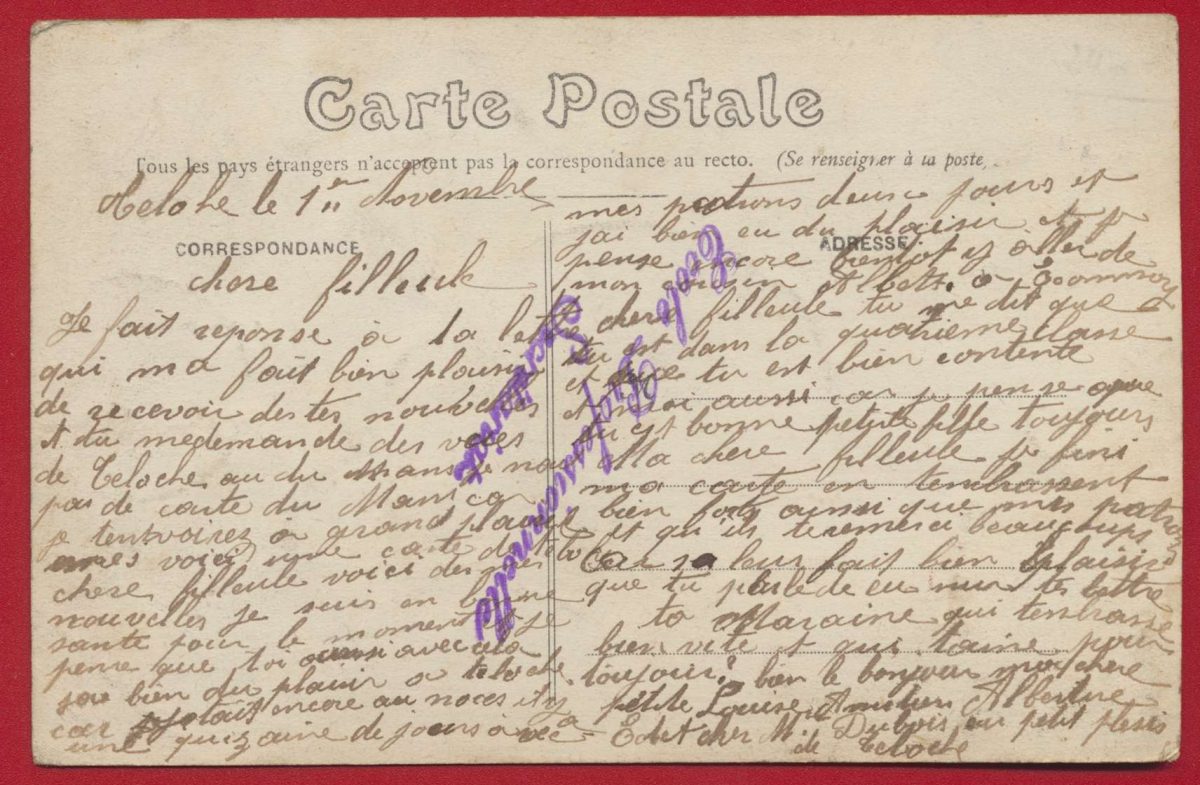 Carte Postale
Tous les pays étrangers n'acceptent pas la correspondance au recto. (Se renseigner à la poste)
Teloche le 1er Novembre
CORRESPONDANCE
chere filleule
Je fait reponse à la lettre
qui ma fait bien plaisir
de recevoir des tes nouvelles
et tu medemande des vues
de Teloche au du mans je nai
pas de carte du Mans car
je tenvoirez à grand plaisir
mes voici une carte de
chere filleule voici des mes
nouvelles je suis en bonne
sante pour le moment je
pense que toi aussi avec cela
jeu bien du plaisir a teloche
car jetait encore au noces il y a
une quizaine de jours avec
mes patrons deux jours et
jai bien eu du plaisir et je
ADRESSE
pense encore bientot y aller de
mon cousin Albert à Ecommoy
chere filleule tu me dit que
tu est dans la quatrieme classe
et que tu est bien contente
et moi aussi car je pense que
tu est bonne petite fille toujours
Ma chere filleule je fini
ma carte en tembrassent
bien fort ainsi que mes patrons
et qu'ils teremerci beaucoups
car sa leur fait bien plaisir
que tu parle de eu sur tes lettre
ta Maraine qui tembrasse
bien vite et qui taime pour
toujours bien le bonjour ma chere
petite Louise Albertine
Edet cher M. Dubois au petit plessis
de Teloche
Ecole Professionnelle